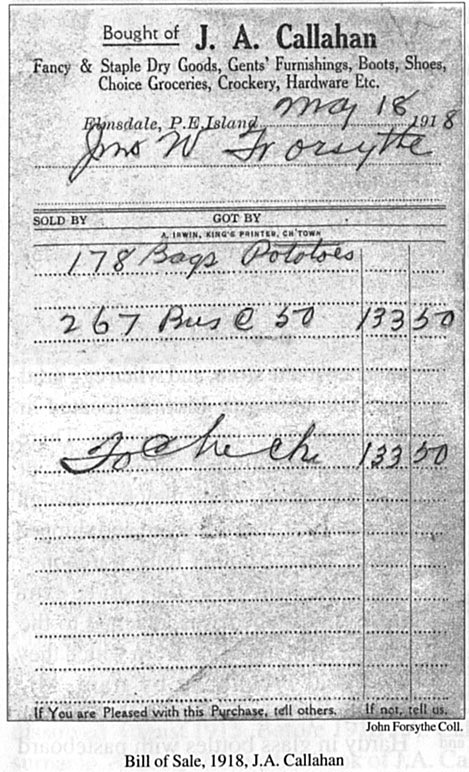 Bought of J. A. Callahan
Fancy & Staple Dry Goods, Gents' Furnishings, Boots, Shoes,
Choice Groceries, Crockery, Hardware Etc.
Elmsdale, P.E.Island May 18 1918
Jno W Forsythe
SOLD BY GOT BY
A. IRWIN, KING'S PRINTER, CH'TOWN
178 Bags Potatoes
267 Bus @ 50 133 50
To Check 133 50
If You are Pleased with this Purchase, tell others. If not, tell us.
John Forsythe Coll.
Bill of Sale, 1918, J.A. Callahan